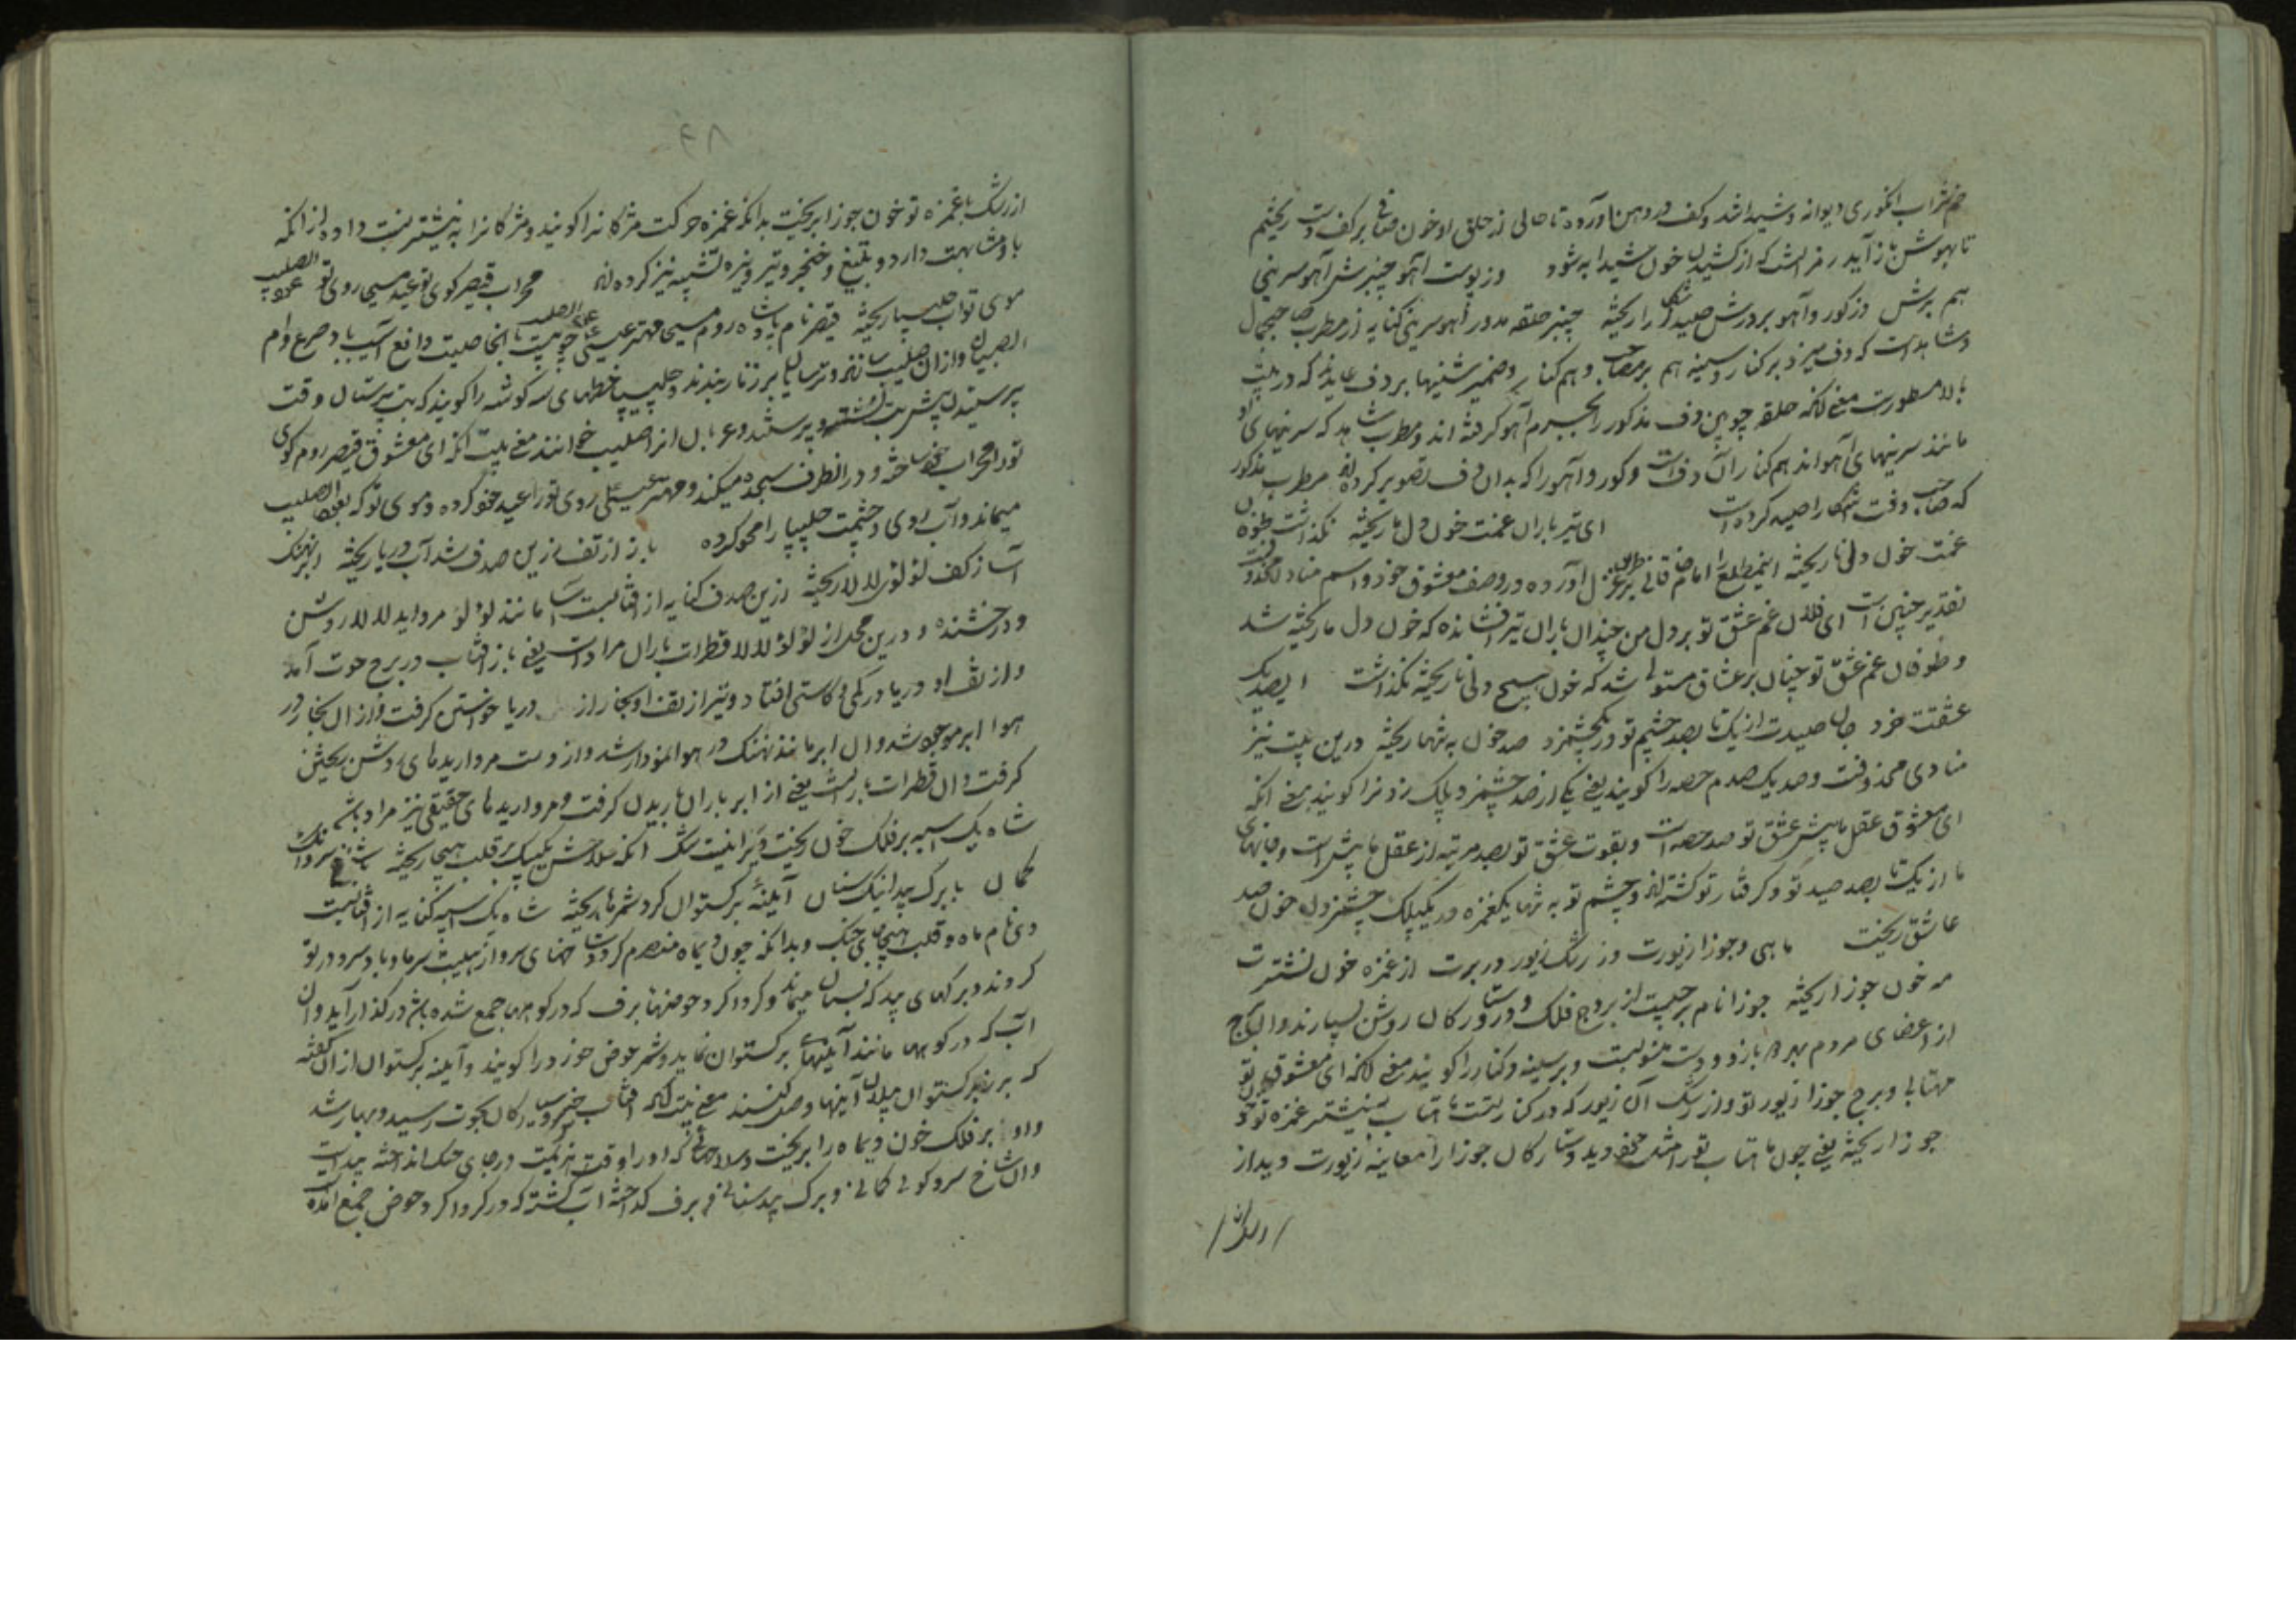 خم شراب انگوری دیوانه و شیدا شد و کف در دهن آورده تا حالی ز حلق او خون صافی بر کف دست ریختیم
تا بهوش باز آید رمز است که از کشیدن خون شیدا به شود وز پوست آهو چنبرش آهو سرینی
هم برش وز گور و آهو بر درش صید را ریخته چنبر حلقه مدور آهو سرینی کنایه از مطرب صاحب جمال
و شاهد است که دف میزند بر کنار و سینه هم بر و هم کنار و ضمیر شینها بر دف عاید که در بیت
بالا مسطورست معنی آنکه حلقه چوبین دف مذکور را بچرم آهو گرفته اند و مطرب شاهد که سرینهای او
مانند سرینهای آهو اند هم کنار آن دف است و گور و آهو را که بدان دف تصویر کرده اند مطرب مذکور
که صاحب دفست شکار صید کرده است ای تیر باران غمت خون دل ما ریخته نگذاشت طوفان
غمت خون دلی ناریخته این مطلع را امام خاقانی بر طریق غزل آورده در وصف معشوق خود و اسم منادا محذوفست
تقدیر چنین است ای فلان غم عشق تو بر دل من چندان باران تیر افشانده که خون دل ما ریخته شد
و طوفان غم عشق تو چنان بر عشاق مستولی شد که خون هیچ دلی ناریخته نگذاشت ای صد یک
عشقت خرد جان صیدت از یک تا بصد چشم تو در یکچشمزد صد خون به تنها ریخته درین بیت نیز
منادی محذوفست و صد یک صدم حصه را گویند یعنی یکی از صد چشمزد پلک زدنرا گویند معنی آنکه
ای معشوق عقل ما پیش عشق تو صد حصه است و بقوت عشق تو بصد مرتبه از عقل ما بیش است و جانهای
ما از یک تا بصد صید تو و گرفتار تو گشته اند و چشم تو به تنها بیکغمزه در یک پلک چشمزدن خون صد
عاشق ریخت ماهی و جوزا زیورت وز رشک زیور در برت از غمزه خون نشترت
مه خون جوزا ریخته جوزا نام برجیست از بروج فلک و درو ستارگان روشن بسیارند و آن برج
از اعضای مردم بهر دو بازو و دست منسوبست و بر سینه و کنار را گویند معنی آنکه ای معشوق تو
مهتابی و برج جوزا زیور تو و از رشک آن زیور که در کنار تست ماهتاب نیشتر غمزه تو خون
جوزا ریخته یعنی چون ماهتاب تو را مثل خود دید و ستارگان جوزا را معاینه زیورت دید از
از رشک با غمزه تو خون جوزا بریخت بدانکه غمزه حرکت مژگانرا گویند و مژگانرا به نیشتر نسبت داده از آنکه
باو مشابهت دارد و بتیغ و خنجر و تیر و نیزه تشبیه نیز کرده اند محراب قیصر کوی تو عید مسیح روی تو عود الصلیب
موی تو آب چلیپا ریخته قیصر نام پادشاه روم مسیح مهتر عیسی عود الصلیب چوبیست با خاصیت دافع آسیب باد صرع و ام
الصبیان و از آن صلیب سازند و ترسایان بر زنار بندند و چلیپا خطهای سه گوشه را گویند که بت پرستان وقت
پرستیدن پیش بت نویسند و پرستند و عربان آنرا صلیب خوانند معنی بیت آنکه ای معشوق قیصر روم کوی
تو را محراب خود ساخته و در آنطرف سجده میکند و مهتر عیسی روی تو را عید خود کرده و موی تو که بعود الصلیب
میماند و آب روی و حشمت چلیپا را محو کرده باز از تف زرین صدف شد آب دریا ریخته ابر نهنگ
آسا ز کف لؤلؤی لالا ریخته زرین صدف کنایه از آفتابست آسا مانند لؤلؤ مروارید لالا روشن
و درخشنده و درین محل از لؤلؤ لالا قطرات باران مراد است یعنی باز آفتاب در برج حوت آمد
و از تف او دریا در کمی و کاستی افتاد و نیز از تف او بخار از دریا خواستن گرفت و از آن بخار در
هوا ابر موجود شد و آن ابر مانند نهنگ در هوا نمودار شد و از دست مرواریدهای روشن ریختن
گرفت و آن قطرات بارانست یعنی از ابر باران باریدن گرفت و مرواریدهای حقیقی نیز مراد باشد
شاه یک اسبه بر فلک خون ریخت دی را نیست شک آنکه سلاحش یک بیک بر قلب هیجا ریخته شاخ سرو آنک
کمان با برگ بید اینک سنان آیینه برگستوان گرد شمرها ریخته شاه یک اسبه کنایه از آفتابست
دی نام ماه و قلب هیجا جای جنگ و بدانکه چون دیماه منصرم گردد شاخهای سرو از هیبت سرما و باد سرد دو تو
گردند و برگهای بید که بسنان میماند و گرداگرد حوضها برف که در کوهها جمع شده باشد در گذار آید و آن
آب که در کوهها مانند آیینهای برگستوان نماید و شمر عوض حوض را گویند و آیینه برگستوان از آن گفته
که بر برگستوان پیلان آیینها وصل کنند معنی بیت آنکه آفتاب خسرو سیارگان بحوت رسید و بهار شد
و او بر فلک خون دیماه را بریخت و سلاحهائی که او را وقت هزیمت در جای جنگ انداخته پیداست
و آن شاخ سرو گوئی کمانی و برگ بید سنانی و برف گداخته آب گشته که در گرداگرد حوض جمع آمده